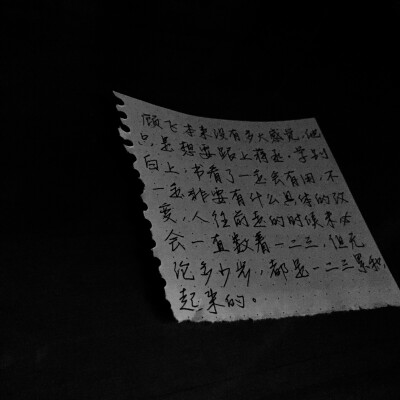 顾飞本来没有多大感觉,他
只是想要踏上
书看了一定会有用,不
一定非要有什么具体的改
变,人往前走的时候未必
会一直数着一二三,但无
论多少步,都是一二三累积
起来的。